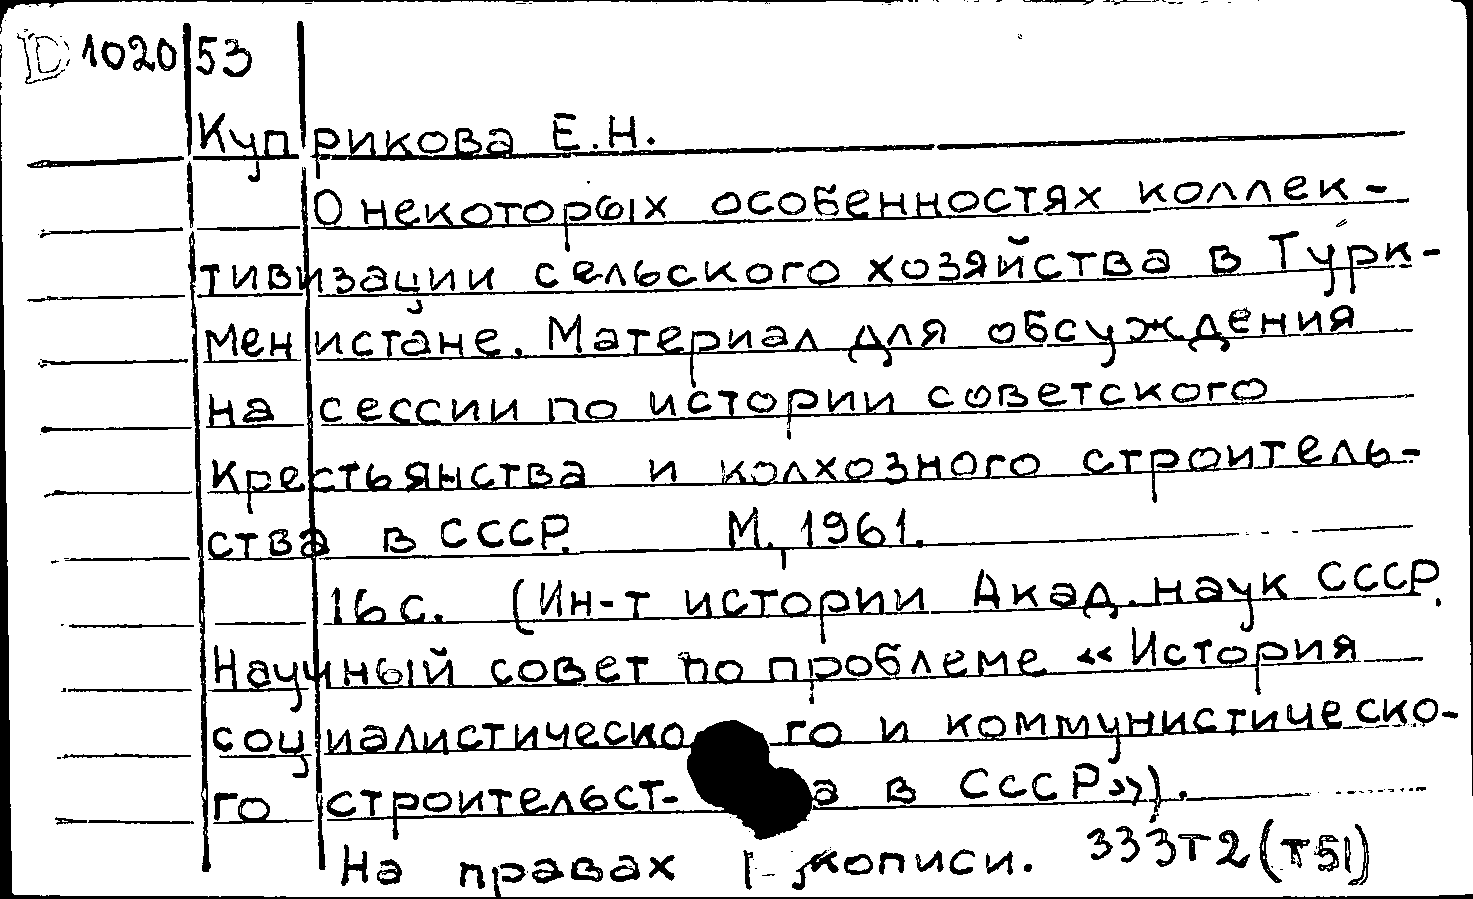 D 1020 53
Куприкова Е.Н.
О некоторых особенностях коллек-
тивизации сельского хозяйства в Турк-
менистане. Материал для обсуждения
на сессии по истории советского
крестьянства и колхозного строитель-
ства в СССР. М., 1961.
16 с. (Ин-т истории Акад. наук СССР.
Научный совет по проблеме «История
социалистического и коммунистическо-
го строительст- а в СССР»).
На правах 333Т2(Т51)